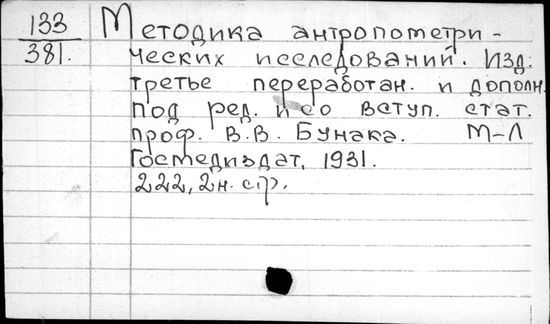 133
381.
Методика антропометри-
ческих исследований. Изд.
третье переработан. и дополн.
под ред. и со вступ. стат.
проф. В.В. Бунака. М-Л
Госмедиздат, 1931.
222, 2н. стр.